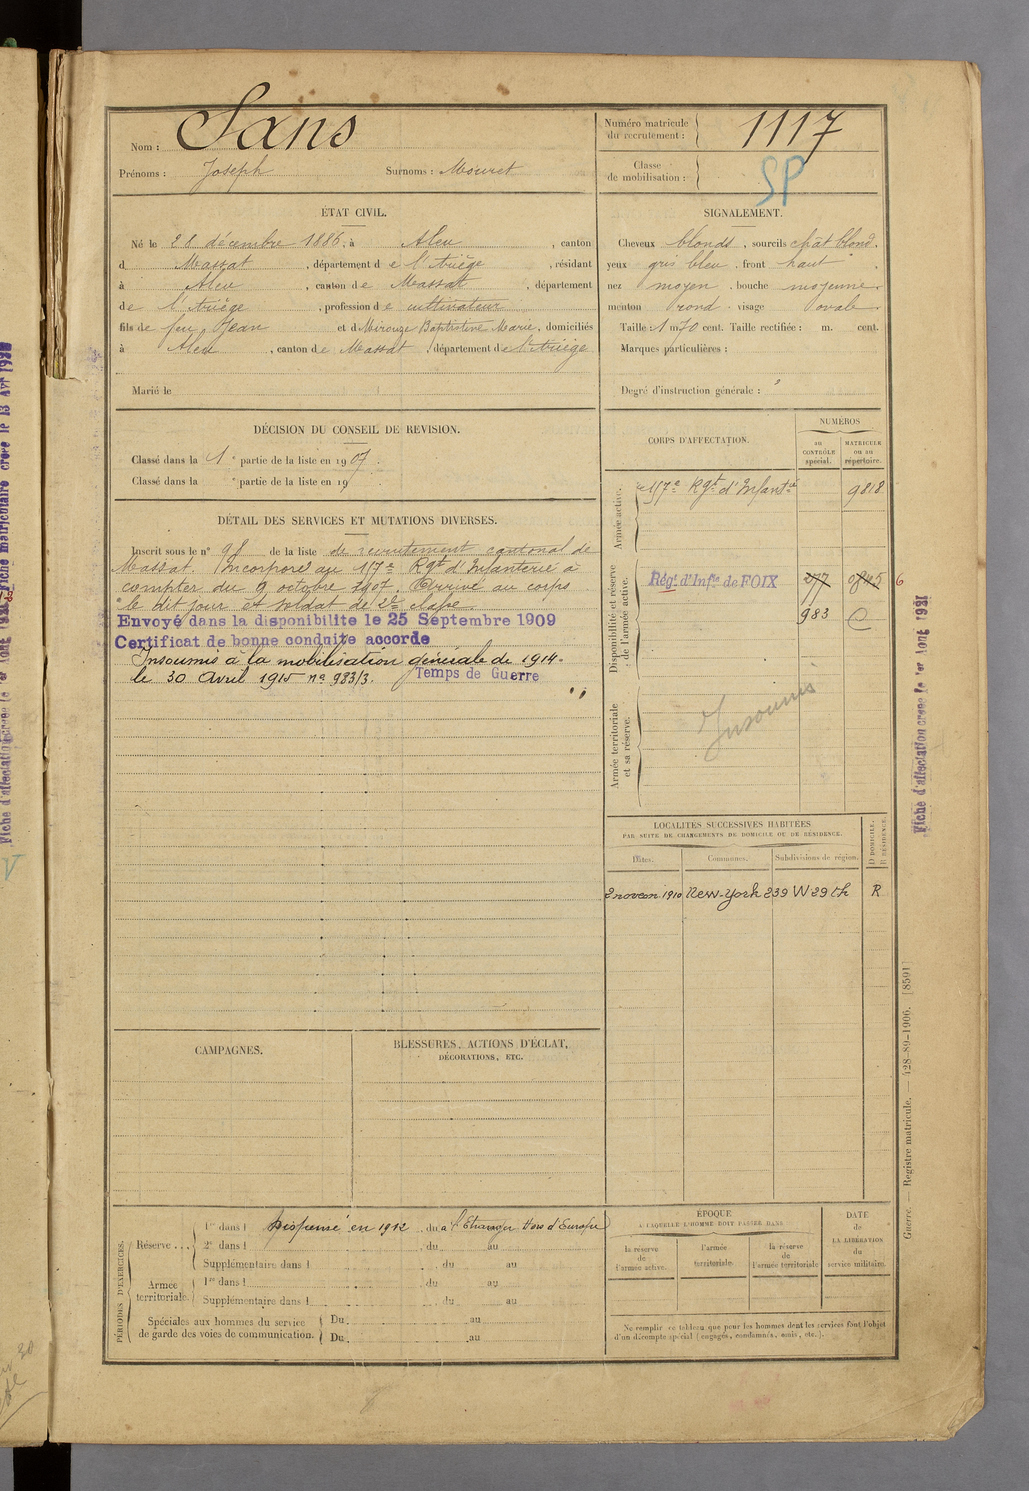 Nom : Sans
Prénoms : Joseph Surnoms : Mouret
Numéro matricule du recrutement : 1117
Classe de mobilisation :
SP
ÉTAT CIVIL.
Né le 28 décembre 1886, à Aleu, canton
d Massat, département de l'Ariège, résidant
à Aleu, canton de Massat, département
de l'Ariège, profession de cultivateur
fils de feu Jean et d Mirouze Baptistine Marie, domiciliés
à Aleu, canton de Massat, département de l'Ariège
Marié le
SIGNALEMENT.
Cheveux blonds, sourcils chât blond.
yeux gris bleu, front haut
nez moyen, bouche moyenne
menton rond, visage ovale
Taille : 1 m 70 cent. Taille rectifiée : m. cent.
Marques particulières :
Degré d'instruction générale :
DÉCISION DU CONSEIL DE REVISION.
Classé dans la 1e partie de la liste en 1907.
Classé dans la e partie de la liste en 19
DÉTAIL DES SERVICES ET MUTATIONS DIVERSES.
Inscrit sous le n° 98 de la liste de recrutement cantonal de
Massat. Incorporé au Rgt d'Infanterie à
compter du 9 octobre 1907. Arrivé au corps
le dit jour et soldat de 2e classe.
Envoyé dans la disponibilité le 25 Septembre 1909
Certificat de bonne conduite accordé
Insoumis à la mobilisation générale de 1914.
le 30 Avril 1915 n° 983/3. Temps de Guerre
CORPS D'AFFECTATION.
NUMÉROS
au CONTRÔLE spécial.
MATRICULE ou au répertoire.
Armée active.
Rgt d'Infantie 9818
Disponibilité et réserve de l'armée active.
Rég. d'Infie de FOIX 277 0845 6
983
Armée territoriale et sa réserve.
Insoumis
LOCALITÉS SUCCESSIVES HABITÉES
PAR SUITE DE CHANGEMENTS DE DOMICILE OU DE RÉSIDENCE.
Dates. Communes. Subdivisions de région. D DOMICILE. R RÉSIDENCE.
2 novem. 1910 New-York 239 W 29 th R
CAMPAGNES.
BLESSURES, ACTIONS D'ÉCLAT,
DÉCORATIONS, ETC.
PÉRIODES D'EXERCICES.
Réserve...
1re dans l Dispensé en 1912 du à l'Etranger Hors d'Europe
2e dans l du au
Supplémentaire dans l du au
Armée territoriale.
1re dans l du au
Supplémentaire dans l du au
Spéciales aux hommes du service
de garde des voies de communication.
Du au
Du au
ÉPOQUE
À LAQUELLE L'HOMME DOIT PASSER DANS
la réserve de l'armée active.
l'armée territoriale.
la réserve de l'armée territoriale
DATE de LA LIBÉRATION du service militaire.
Ne remplir ce tableau que pour les hommes dont les services font l'objet
d'un décompte spécial (engagés, condamnés, omis, etc.).
Guerre. — Registre matricule. — 428-89-1906. [8591]
Fiche d'affectation créée le 1er Août 1931